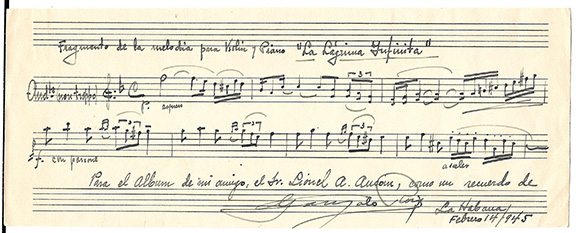 Fragmento de la melodía para Violín y Piano "La Lágrima Infinita"
Andte (non troppo)
p. espress
3
3 3 3 3
f. con passione
Para el Album de mi amigo, el Sr. Lionel A.
como un recuerdo de
Gonzalo Roig
La Habana,
Febrero 14/945